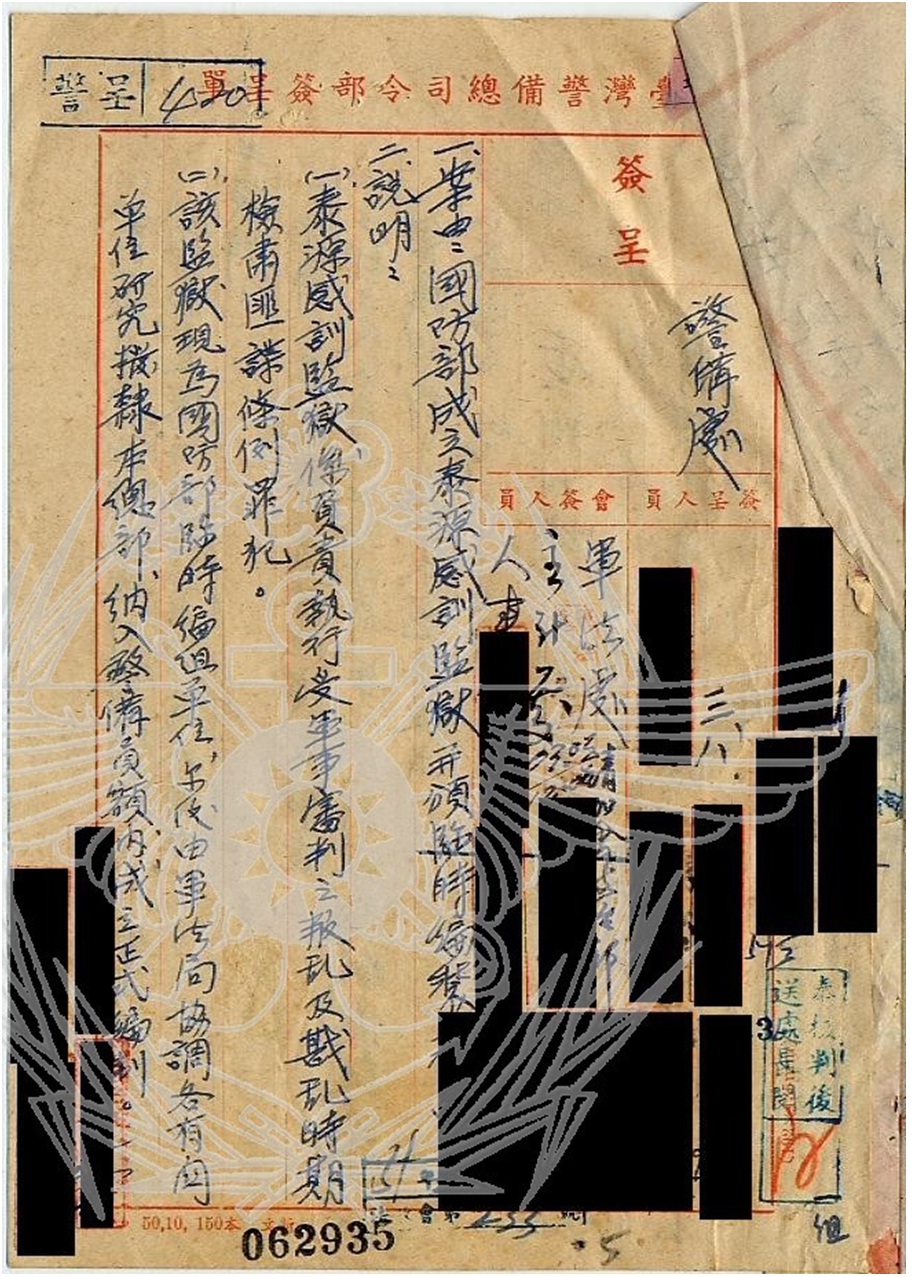 臺灣警備總司令部簽呈單
警呈 420
簽呈
警備處
簽呈人員
會簽人員
三、八
軍法處
主計處
人事
一、案由：國防部成立泰源感訓監獄并頒臨時編
二、說明：
(一)泰源感訓監獄，係負責執行受軍事審判之叛乱及戡乱時期
檢肅匪諜條例罪犯。
(二)該監獄現為國防部臨時編組單位，尔後由軍法局協調各有関
單位研究撥隸本總部，納入警備員額內，成立正式編制。
核判後
送處
組
50,10, 150本
會第 號
062935
5